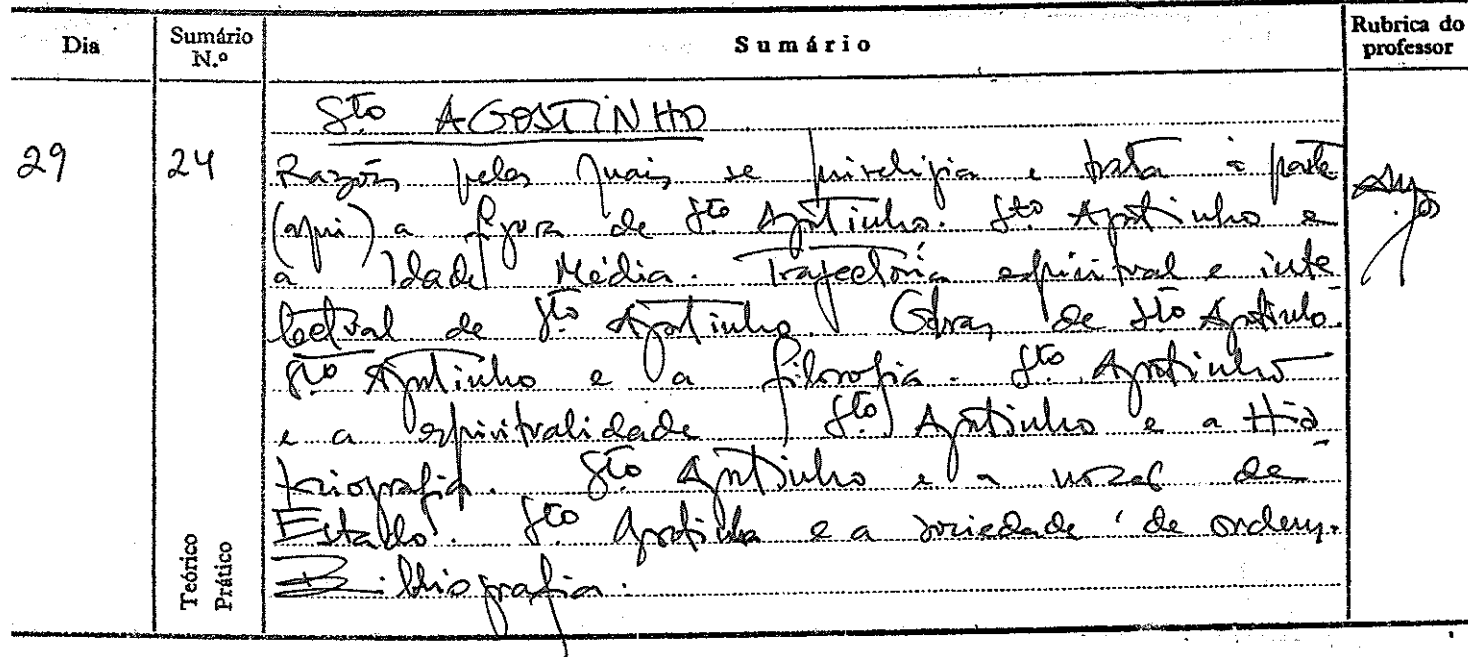 Dia
Sumário N.º
Sumário
Rubrica do professor
Sto AGOSTINHO
29
24
Razões pelas quais se privilegia e trata à parte
(aqui) a figura de Sto Agostinho. Sto Agostinho e
a Idade Média. Trajectória espiritual e inte
lectual de Sto Agostinho. Obras de Sto Agostinho.
Sto Agostinho e a filosofia. Sto Agostinho
e a espiritualidade. Sto Agostinho e a His
toriografia. Sto Agostinho e a noção de
Estado. Sto Agostinho e a sociedade de ordens.
Bibliografia.
Teórico
Prático